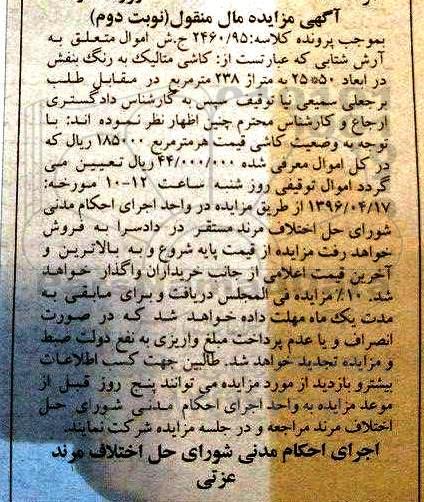 آگهی مزایده مال منقول(نوبت دوم)
بموجب پرونده کلاسه:۲۴۶۰/۹۵ ح.ش اموال متعلق به
آرش شتابی که عبارتست از: کاشی متالیک به رنگ بنفش
در ابعاد ۵۰*۲۵ به متراژ ۲۳۸ مترمربع در مقابل طلب
برجعلی سمیعی نیا توقیف سپس به کارشناس دادگستری
ارجاع و کارشناس محترم چنین اظهار نظر نموده اند: با
توجه به وضعیت کاشی قیمت هرمترمربع ۱۸۵۰۰۰ ریال که
در کل اموال معرفی شده ۴۴/۰۰۰/۰۰۰ ریال تعیین می
گردد اموال توقیفی روز شنبه ساعت ۱۲-۱۰ مورخه:
۱۳۹۶/۰۴/۱۷ از طریق مزایده در واحد اجرای احکام مدنی
شورای حل اختلاف مرند مستقر در دادسرا به فروش
خواهد رفت مزایده از قیمت پایه شروع و به بالاترین و
آخرین قیمت اعلامی از جانب خریداران واگذار خواهد
شد. ۱۰٪ مزایده فی المجلس دریافت و برای مابقی به
مدت یک ماه مهلت داده خواهد شد که در صورت
انصراف و یا عدم پرداخت مبلغ واریزی به نفع دولت ضبط
و مزایده تجدید خواهد شد. طالبین جهت کسب اطلاعات
بیشترو بازدید از مورد مزایده می توانند پنج روز قبل از
موعد مزایده به واحد اجرای احکام مدنی شورای حل
اختلاف مرند مراجعه و در جلسه مزایده شرکت نمایند.
اجرای احکام مدنی شورای حل اختلاف مرند
عزتی